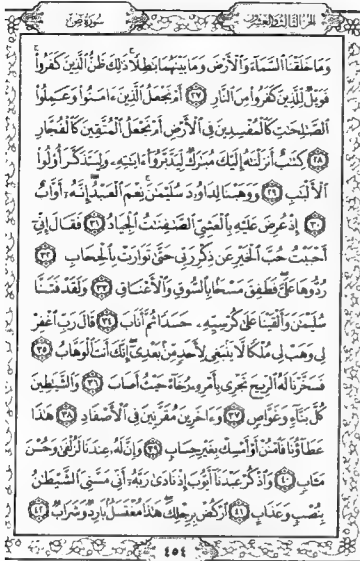 الجزء الثالث والعشرون
سورة ص
وَمَا خَلَقْنَا ٱلسَّمَآءَ وَٱلْأَرْضَ وَمَا بَيْنَهُمَا بَٰطِلًا ۚ ذَٰلِكَ ظَنُّ ٱلَّذِينَ كَفَرُوا۟ ۚ
فَوَيْلٌ لِّلَّذِينَ كَفَرُوا۟ مِنَ ٱلنَّارِ ٢٧ أَمْ نَجْعَلُ ٱلَّذِينَ ءَامَنُوا۟ وَعَمِلُوا۟
ٱلصَّٰلِحَٰتِ كَٱلْمُفْسِدِينَ فِى ٱلْأَرْضِ أَمْ نَجْعَلُ ٱلْمُتَّقِينَ كَٱلْفُجَّارِ
٢٨ كِتَٰبٌ أَنزَلْنَٰهُ إِلَيْكَ مُبَٰرَكٌ لِّيَدَّبَّرُوٓا۟ ءَايَٰتِهِۦ وَلِيَتَذَكَّرَ أُو۟لُوا۟
ٱلْأَلْبَٰبِ ٢٩ وَوَهَبْنَا لِدَاوُۥدَ سُلَيْمَٰنَ ۚ نِعْمَ ٱلْعَبْدُ ۖ إِنَّهُۥٓ أَوَّابٌ
٣٠ إِذْ عُرِضَ عَلَيْهِ بِٱلْعَشِىِّ ٱلصَّٰفِنَٰتُ ٱلْجِيَادُ ٣١ فَقَالَ إِنِّىٓ
أَحْبَبْتُ حُبَّ ٱلْخَيْرِ عَن ذِكْرِ رَبِّى حَتَّىٰ تَوَارَتْ بِٱلْحِجَابِ ٣٢
رُدُّوهَا عَلَىَّ ۖ فَطَفِقَ مَسْحًۢا بِٱلسُّوقِ وَٱلْأَعْنَاقِ ٣٣ وَلَقَدْ فَتَنَّا
سُلَيْمَٰنَ وَأَلْقَيْنَا عَلَىٰ كُرْسِيِّهِۦ جَسَدًا ثُمَّ أَنَابَ ٣٤ قَالَ رَبِّ ٱغْفِرْ
لِى وَهَبْ لِى مُلْكًا لَّا يَنۢبَغِى لِأَحَدٍ مِّنۢ بَعْدِىٓ ۖ إِنَّكَ أَنتَ ٱلْوَهَّابُ ٣٥
فَسَخَّرْنَا لَهُ ٱلرِّيحَ تَجْرِى بِأَمْرِهِۦ رُخَآءً حَيْثُ أَصَابَ ٣٦ وَٱلشَّيَٰطِينَ
كُلَّ بَنَّآءٍ وَغَوَّاصٍ ٣٧ وَءَاخَرِينَ مُقَرَّنِينَ فِى ٱلْأَصْفَادِ ٣٨ هَٰذَا
عَطَآؤُنَا فَٱمْنُنْ أَوْ أَمْسِكْ بِغَيْرِ حِسَابٍ ٣٩ وَإِنَّ لَهُۥ عِندَنَا لَزُلْفَىٰ وَحُسْنَ
مَـَٔابٍ ٤٠ وَٱذْكُرْ عَبْدَنَآ أَيُّوبَ إِذْ نَادَىٰ رَبَّهُۥٓ أَنِّى مَسَّنِىَ ٱلشَّيْطَٰنُ
بِنُصْبٍ وَعَذَابٍ ٤١ ٱرْكُضْ بِرِجْلِكَ ۖ هَٰذَا مُغْتَسَلٌۢ بَارِدٌ وَشَرَابٌ ٤٢
٤٥٤